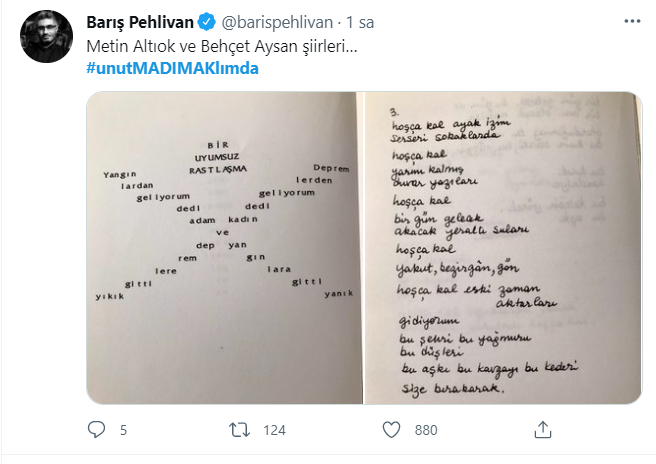 Barış Pehlivan @barispehlivan · 1 sa
Metin Altıok ve Behçet Aysan şiirleri...
#unutMADIMAKlımda
BİR
UYUMSUZ
RASTLAŞMA
Yangın Deprem
lardan lerden
geliyorum geliyorum
dedi dedi
adam kadın
ve
dep yan
rem gın
lere lara
gitti gitti
yıkık yanık
3.
hoşça kal ayak izim
serseri sokaklarda
hoşça kal
yarım kalmış
duvar yazıları
hoşça kal
bir gün gelecek
akacak yeraltı suları
hoşça kal
yakut, bezirgân, gön
hoşça kal eski zaman
aktarları
gidiyorum
bu şehri bu yağmuru
bu düşleri
bu aşkı bu kavgayı bu kederi
size bırakarak.
5 124 880